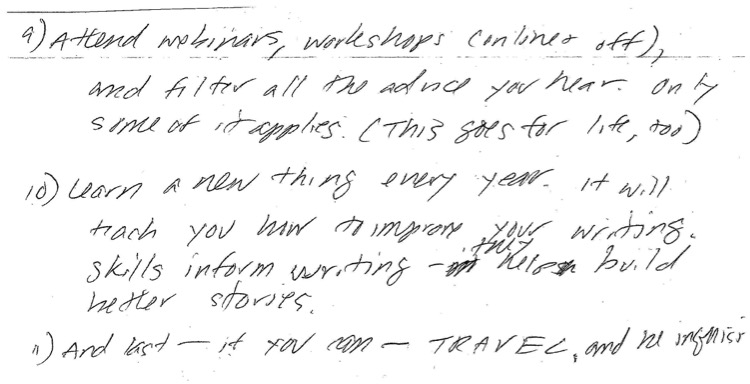 9) Attend webinars, workshops (online & off),
and filter all the advice you hear. Only
some of it applies. (This goes for life, too)
10) Learn a new thing every year. It will
teach you how to improve your writing.
Skills inform writing - they help build
better stories.
11) And last — if you can — TRAVEL, and be